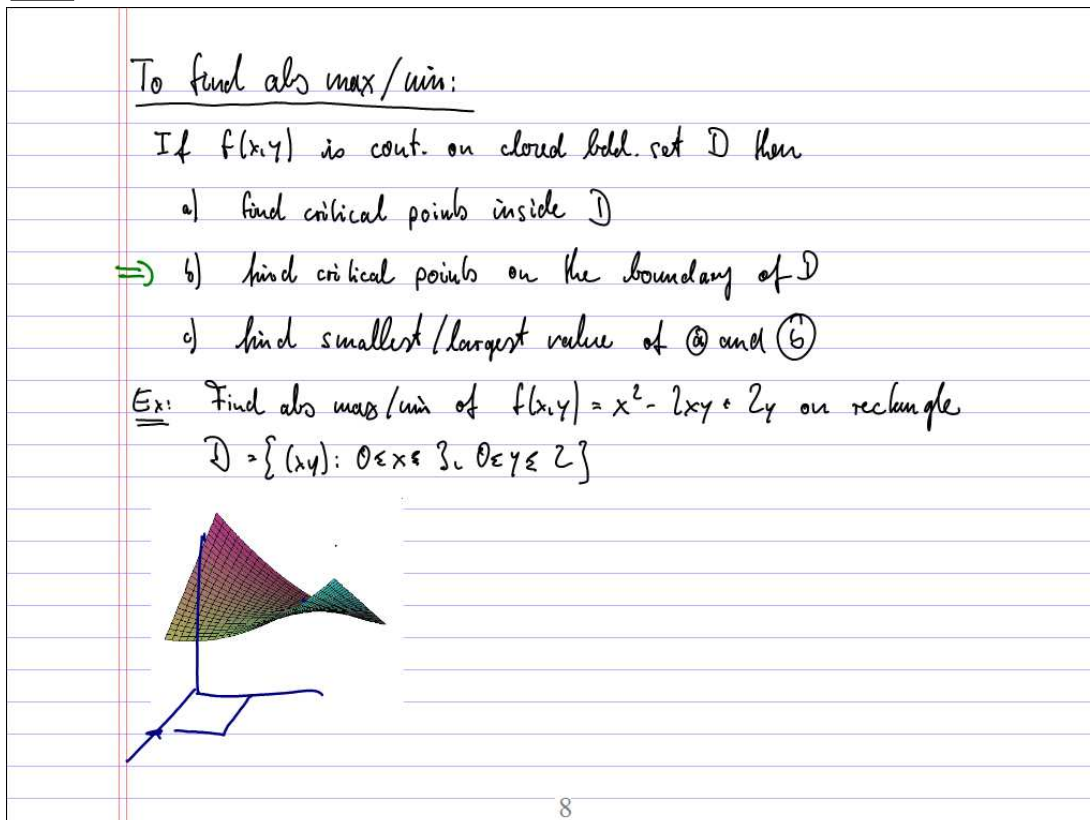 To find abs max/min:
If f(x,y) is cont. on closed bdd. set D then
a) find critical points inside D
⇒ b) find critical points on the boundary of D
c) find smallest/largest value of ⓐ and ⓑ
Ex: Find abs max/min of f(x,y) = x² - 2xy + 2y on rectangle
D = { (xy): 0≤x≤ 3, 0≤y≤ 2 }
8